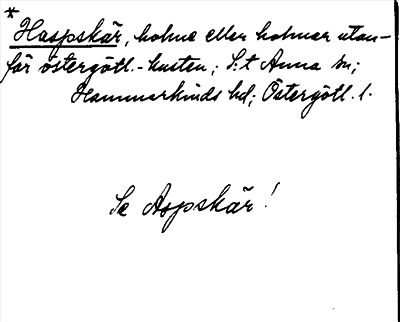 *
Haspskär, holme eller holmar utan-
för östergötl.-kusten; S:t Anna sn;
Hammarkinds hd; Östergötl. l.
Se Aspskär!